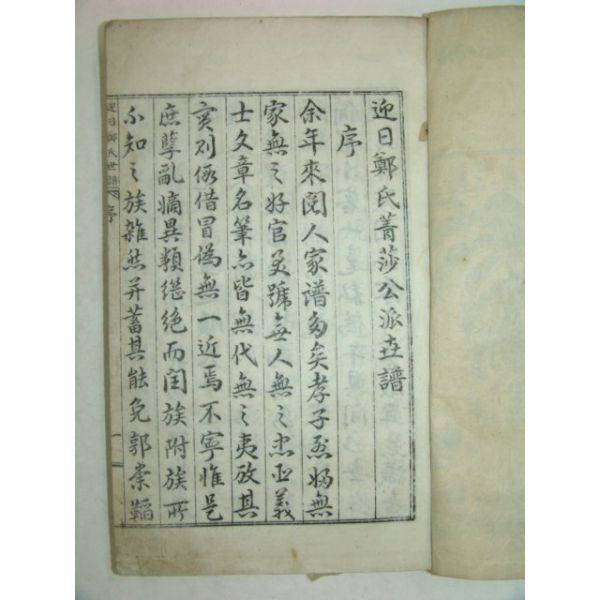 迎日鄭氏菁莎公派世譜
序
余年來閱人家譜多矣孝子烈婦無
家無之好官美號無人無之忠臣義
士文章名筆亦皆無代無之夷攷其
實則假借冒僞無一近焉不寧惟是
庶孼亂嫡異類繼絶而閏族附族所
不知之族雜然並蓄其能免郭崇韜
迎日鄭氏世譜 序